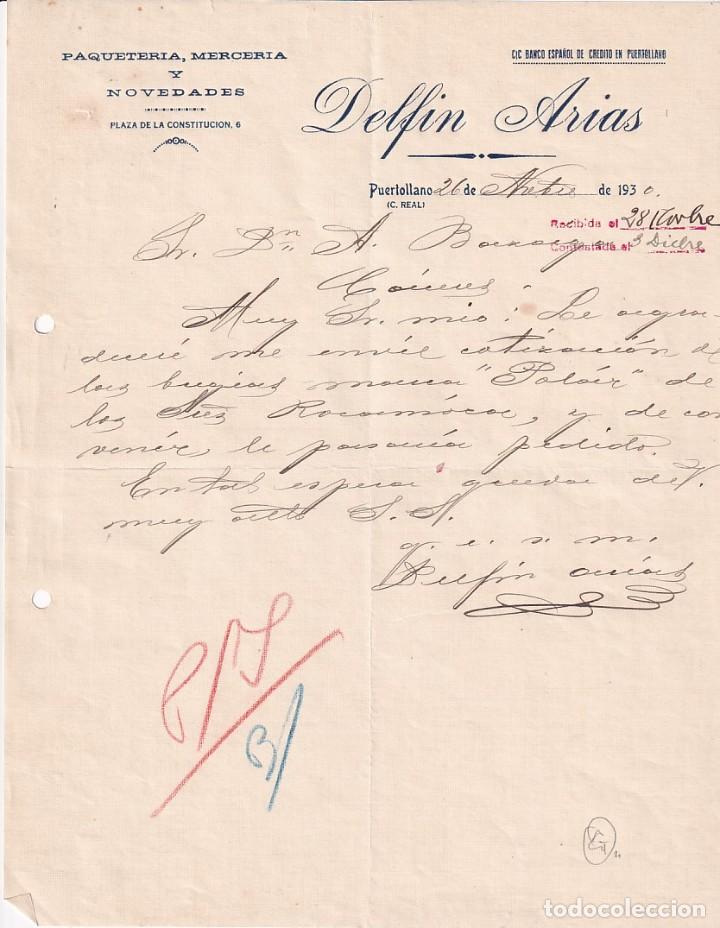 PAQUETERIA, MERCERIA
Y
NOVEDADES
PLAZA DE LA CONSTITUCION, 6
C/C BANCO ESPAÑOL DE CREDITO EN PUERTOLLANO
Delfin Arias
Puertollano 26 de Nbre de 1930.
(C. REAL)
Recibida el 28 Novbre
Contestada el 3 Dicbre
Sr. Dn A.
Cáceres.
Muy Sr. mio: Le agra-
deceré me envíe cotización de
las bugias marca "Polar" de
los Sres Rocamóra, y de con
venir, le pasaría pedido.
En tal espera quedo de V.
muy atto S. S.
q. e. s. m.
Delfin Arias
P/
B/
todocoleccion